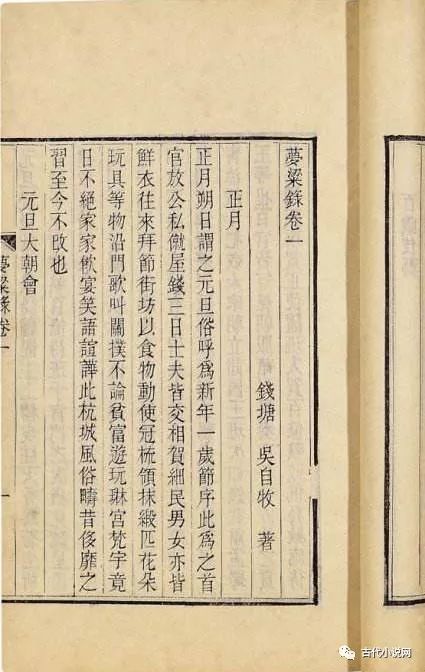 夢粱錄卷一
錢塘 吳自牧 著
正月
正月朔日謂之元旦俗呼爲新年一歲節序此爲之首
官放公私僦屋錢三日士夫皆交相賀細民男女亦皆
鮮衣往來拜節街坊以食物動使冠梳領抹緞匹花朵
玩具等物沿門歌叫關撲不論貧富遊玩琳宮梵宇竟
日不絕家家飮宴笑語諠譁此杭城風俗疇昔侈靡之
習至今不改也
元旦大朝會
夢粱錄卷一
一
古代小说网